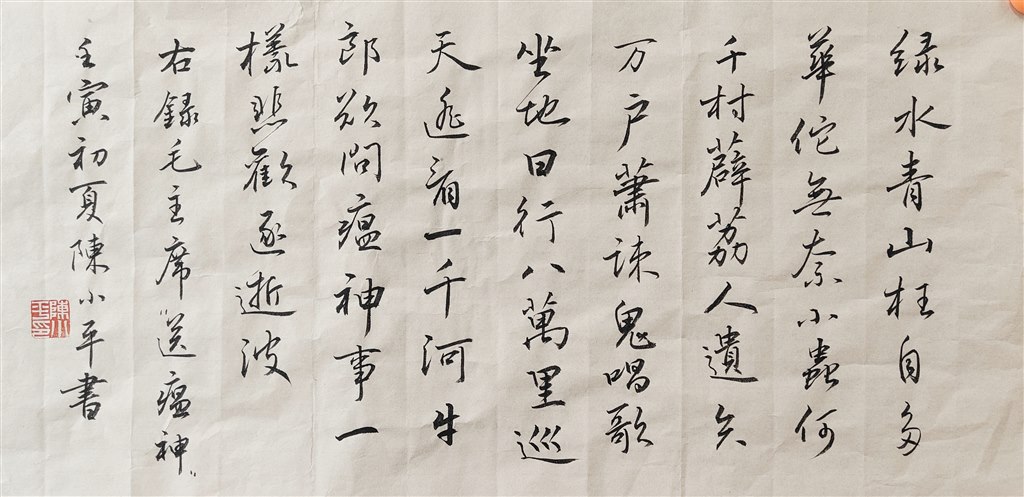 绿水青山枉自多
華佗無奈小蟲何
千村薜荔人遺矢
万户蕭疎鬼唱歌
坐地日行八萬里巡
天遥看一千河牛
郎欲問瘟神事一
樣悲歡逐逝波
右録毛主席“送瘟神”
壬寅初夏陳小平書
陳小平印